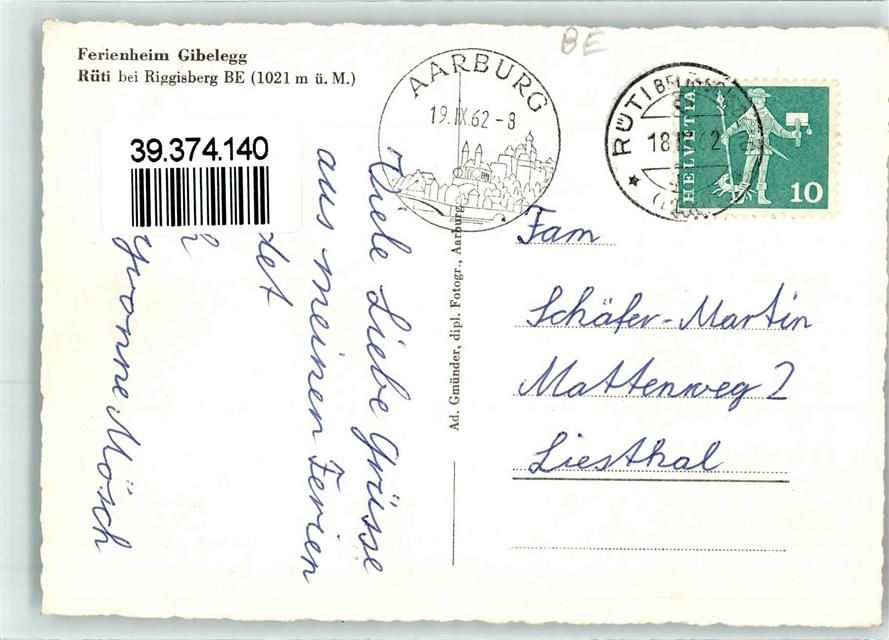 Ferienheim Gibelegg
Rüti bei Riggisberg BE (1021 m ü. M.)
BE
AARBURG
19.IX.62-8
RÜTI BEI
18 62
HELVETIA
10
39.374.140
Viele Liebe Grüsse
aus meinen Ferien
Yvonne Mösch
Ad. Gmünder, dipl. Fotogr., Aarburg
Fam
Schäfer-Martin
Mattenweg 2
Liesthal